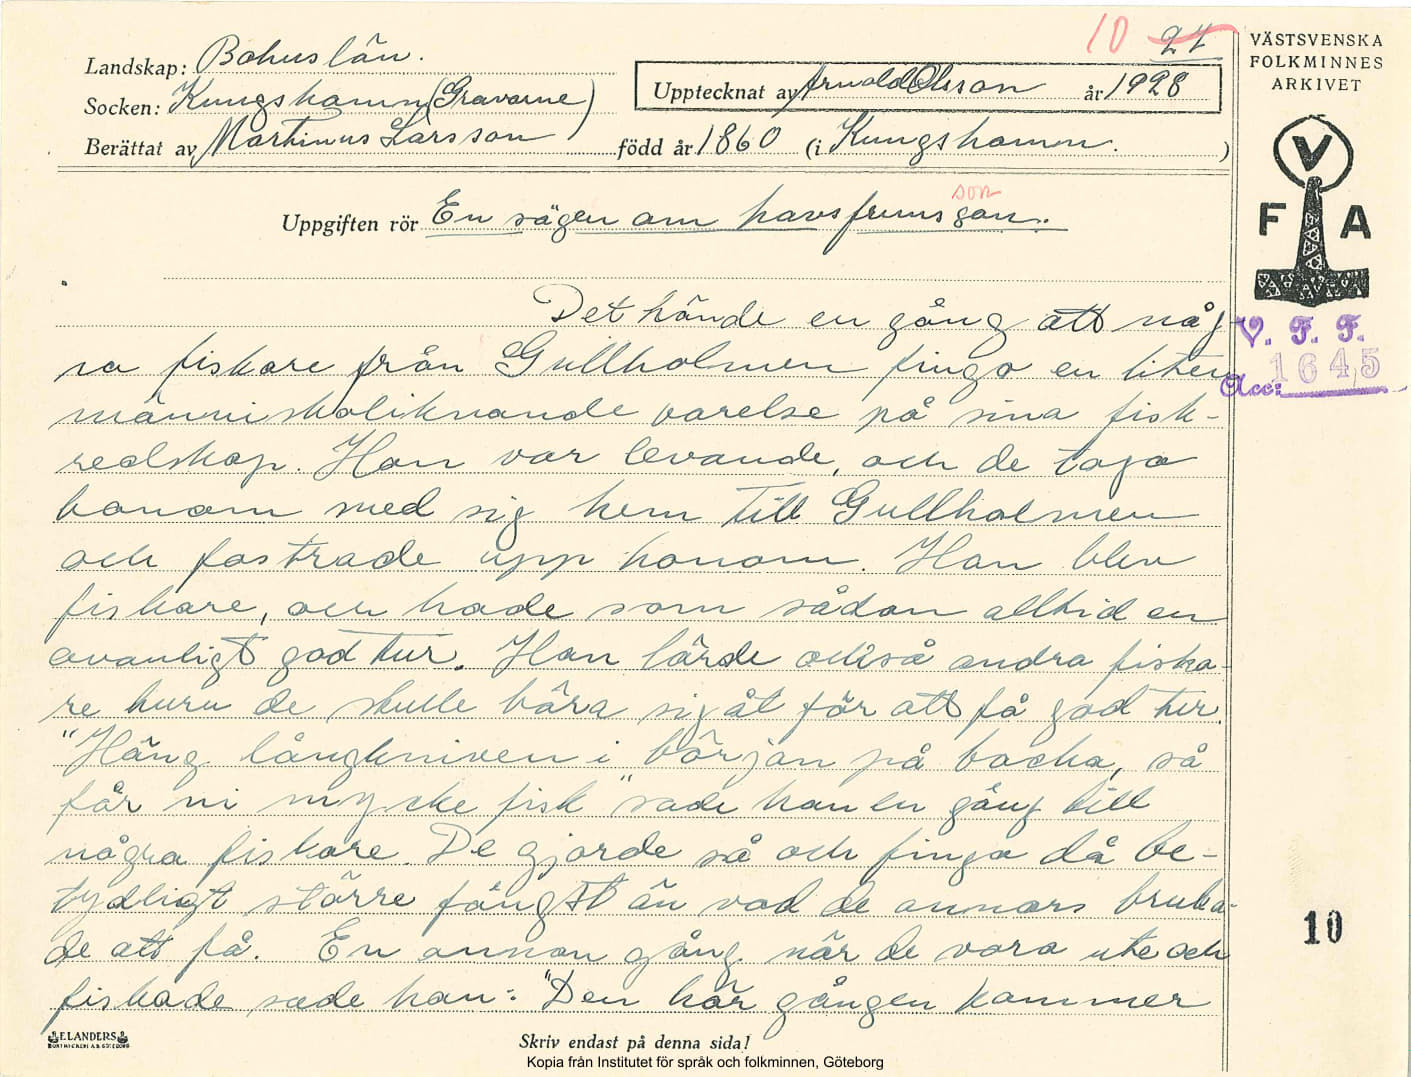 10 27
Landskap: Bohuslän.
Socken: Kungshamn (Gravarne)
Berättat av Martinus Larsson född år 1860 (i Kungshamn.)
Upptecknat av Arnold Olsson år 1928
VÄSTSVENSKA
FOLKMINNES
ARKIVET
V
F A
Uppgiften rör En sägen om havsfruns gan.
son
V. F. F.
Acc: 1645
Det hände en gång att någ
ra fiskare från Gullholmen fingo en liten
människoliknande varelse på sina fisk-
redskap. Han var levande, och de togo
honom med sig hem till Gullholmen
och fostrade upp honom. Han blev
fiskare, och hade som sådan alltid en
ovanligt god tur. Han lärde också andra fiska-
re huru de skulle bära sig åt för att få god tur.
"Häng långkniven i början på backa, så
får ni mycke fisk" sade han en gång till
några fiskare. De gjorde så och fingo då be-
tydligt större fångst än vad de annars bruka-
de att få. En annan gång när de voro ute och
fiskade sade han: "Den här gången kommer
10
ELANDERS
BOKTRYCKERI A.B. GÖTEBORG
Skriv endast på denna sida!
Kopia från Institutet för språk och folkminnen, Göteborg